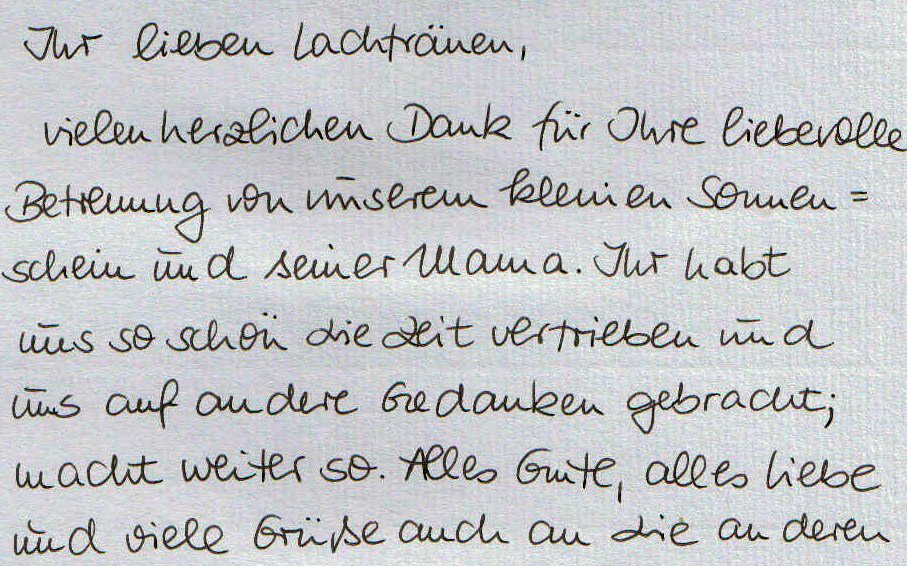 Ihr lieben Lachtränen,
vielen herzlichen Dank für Ihre liebevolle
Betreuung von unserem kleinen Sonnen=
schein und seiner Mama. Ihr habt
uns so schön die Zeit vertrieben und
uns auf andere Gedanken gebracht;
macht weiter so. Alles Gute, alles Liebe
und viele Grüße auch an die anderen